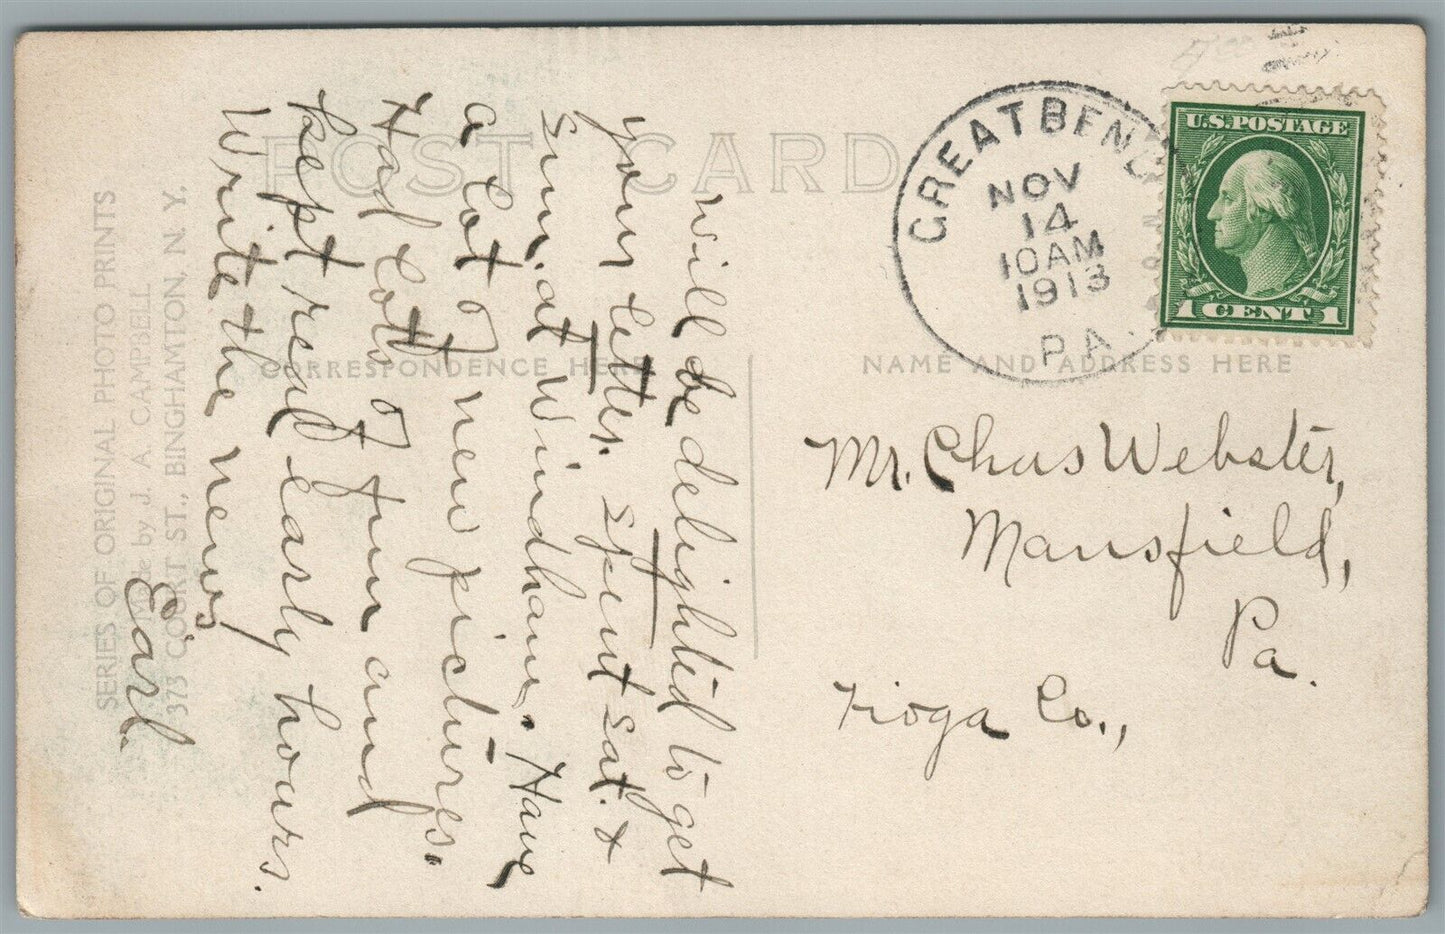 POST CARD
CORRESPONDENCE HERE
NAME AND ADDRESS HERE
GREAT BEND
NOV
14
10 AM
1913
PA.
U.S. POSTAGE
1 CENT 1
Mr. Chas Webster,
Mansfield,
Pa.
Tioga Co.,
Will be delighted to get
your letter. Spent Sat. &
Sun. at Windham. Have
a lot of new pictures.
Had lots of fun and
kept real early hours.
Write the news
Earl.
SERIES OF ORIGINAL PHOTO PRINTS
Made by J. A. CAMPBELL
373 COURT ST., BINGHAMTON, N. Y.